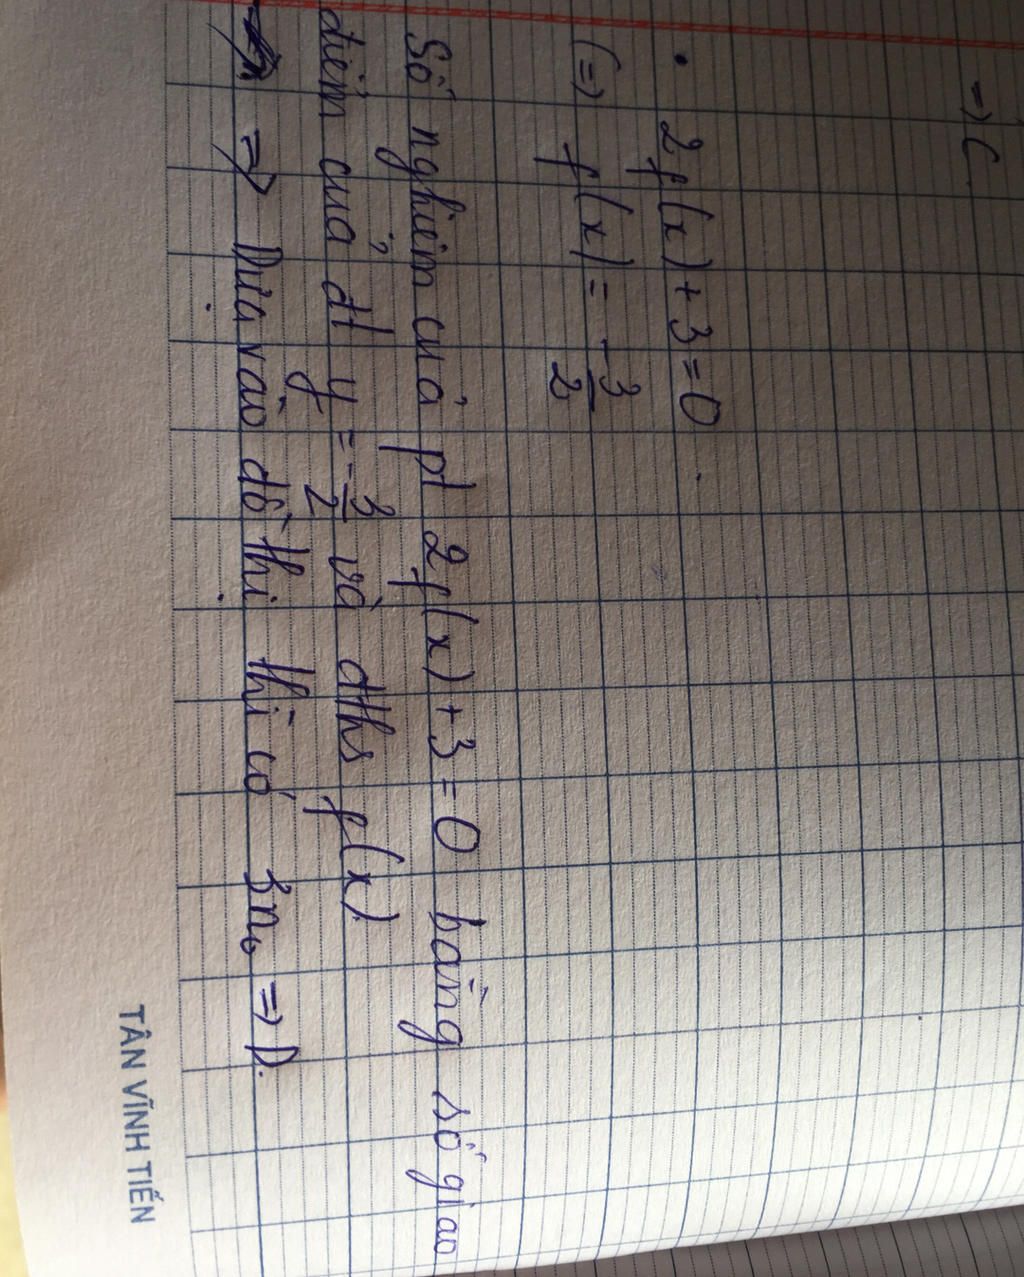 => C
• 2f(x) + 3 = 0
(=) f(x) = -3/2
Số nghiệm của pt 2f(x) + 3 = 0 bằng số giao
điểm của đt y = -3/2 và đths f(x)
=> Dựa vào đồ thị thì có 3n₀ => D.
TÂN VĨNH TIẾN